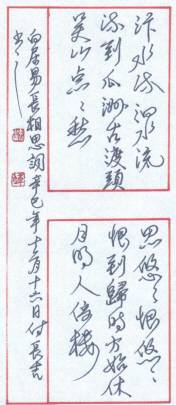 汴水流泗水流
流到瓜洲古渡頭
吴山点〻愁
思悠〻恨悠〻
恨到歸時方始休
月明人倚楼
白居易長相思詞辛巳年十二月十六日付長吉